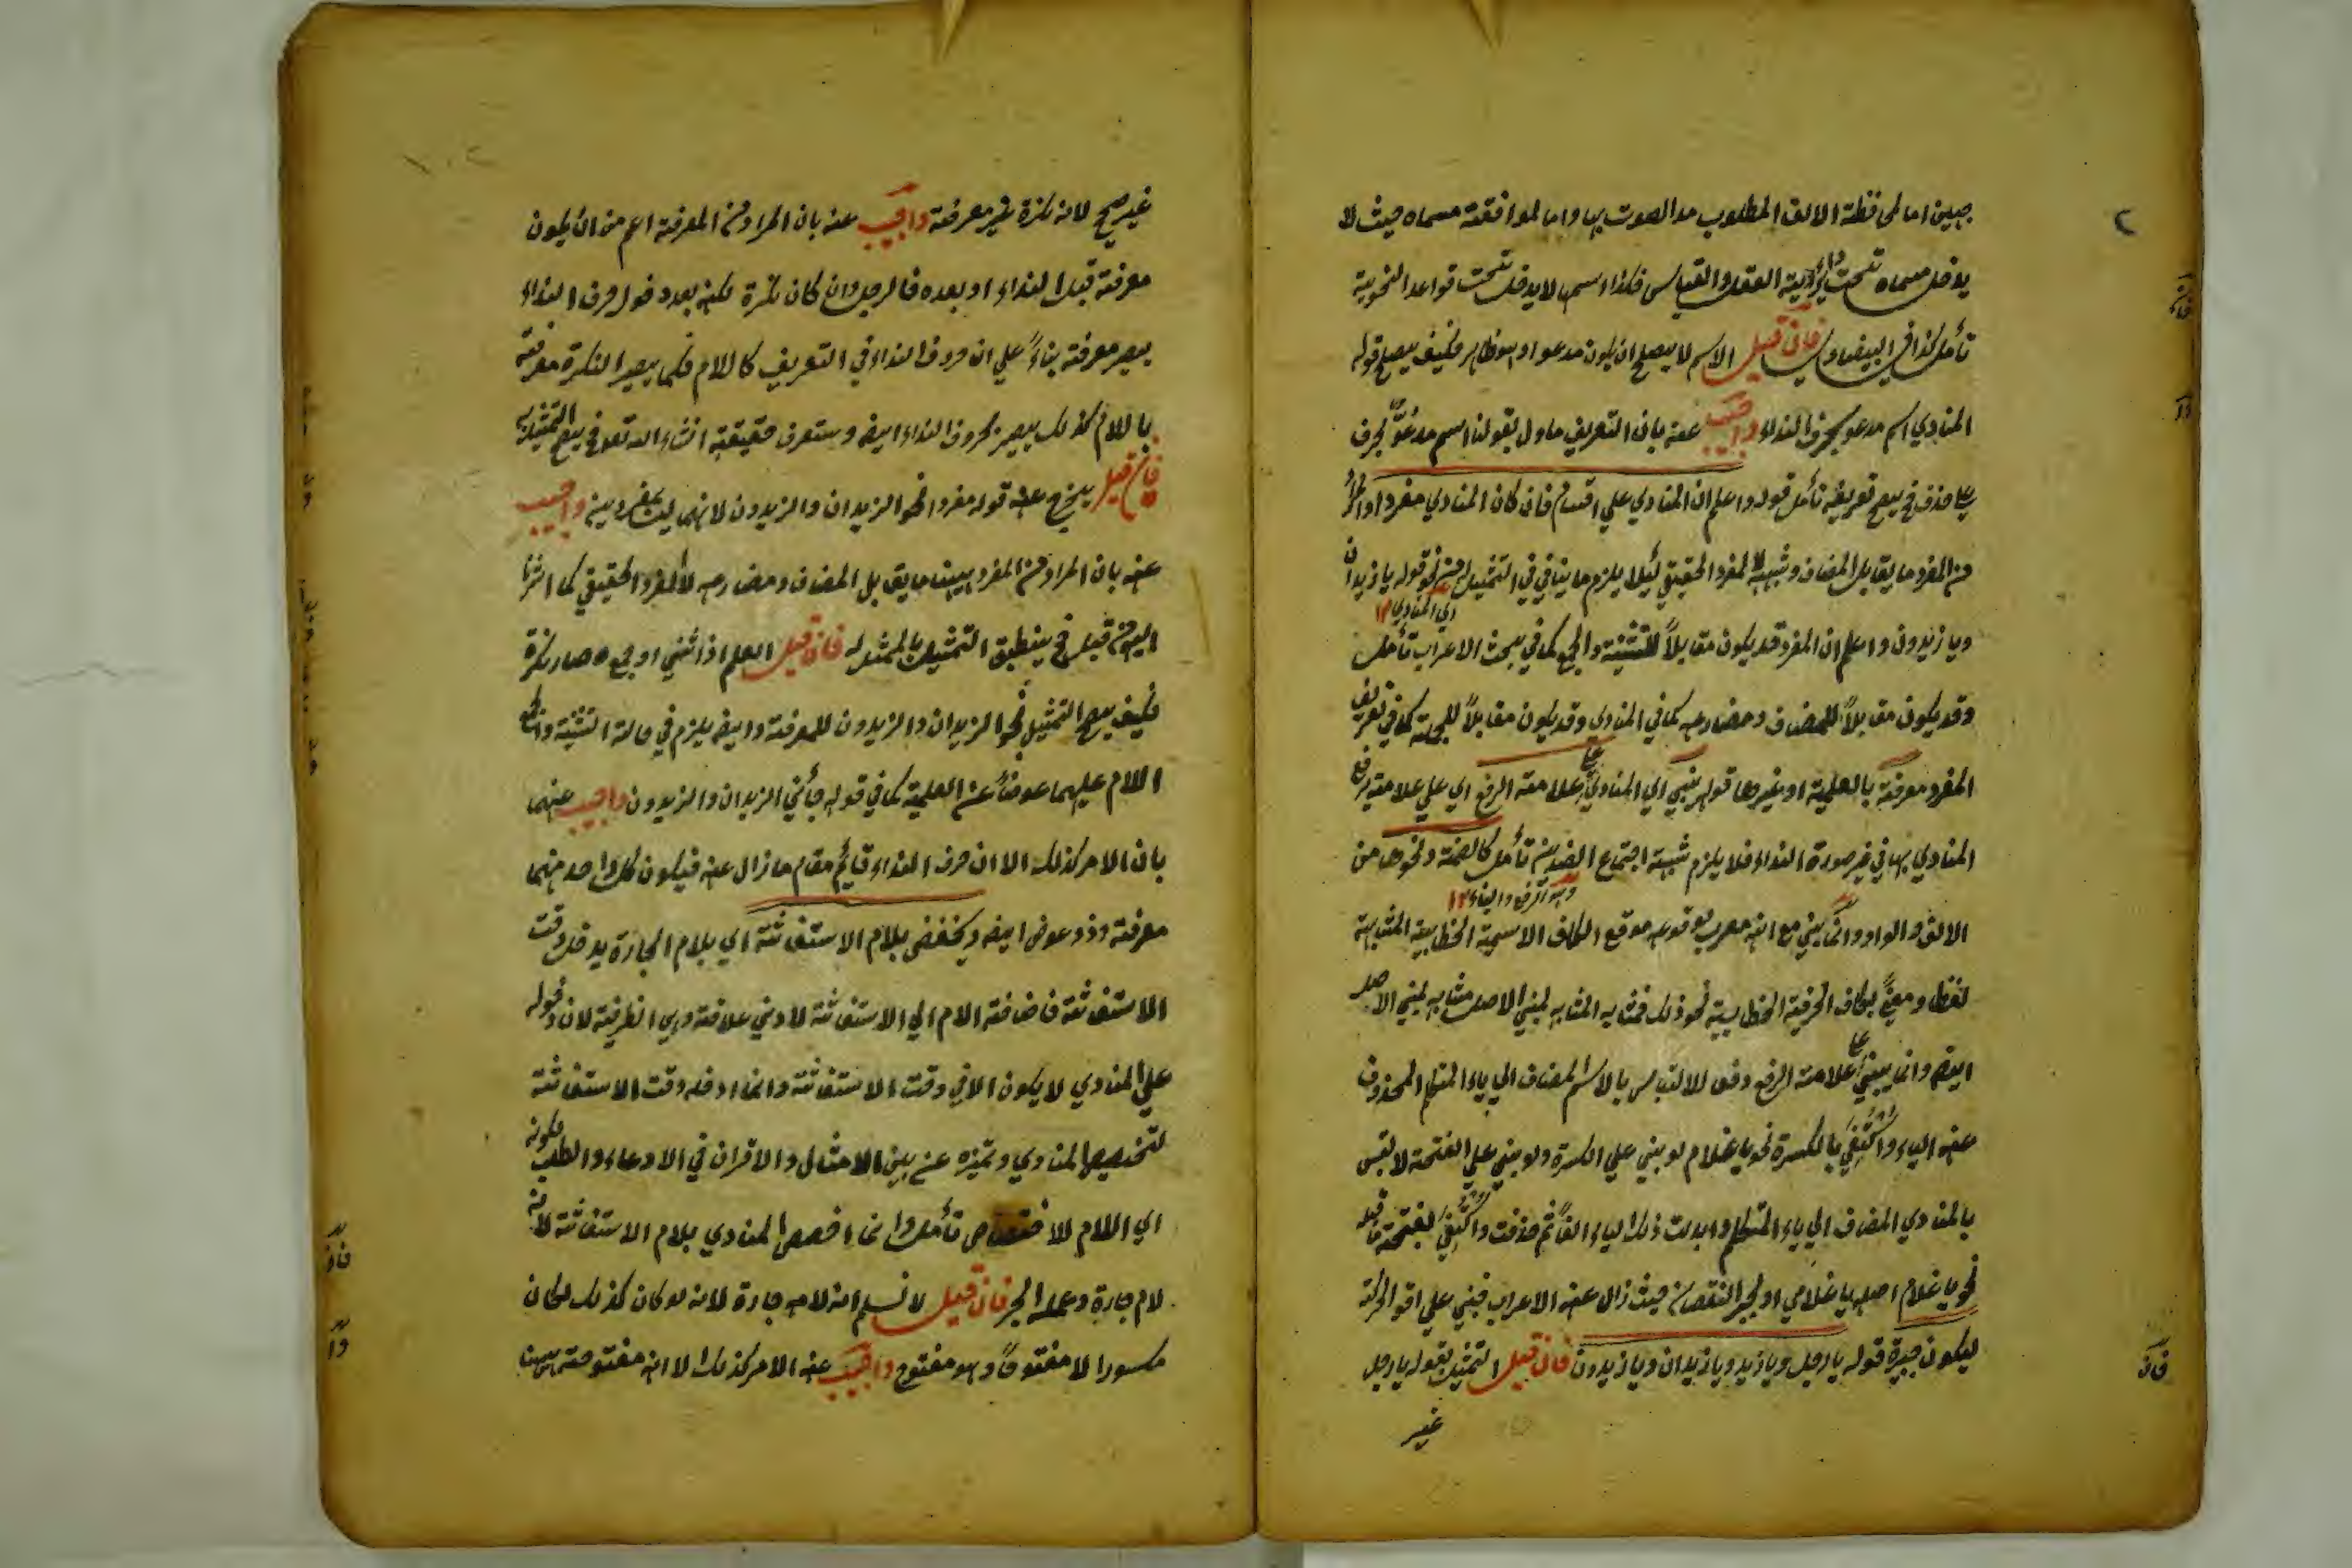 جهين اما لمحافظة الالف المطلوب مد الصوت بها واما لموافقة مسماه حيث لا
يدخل مسماه تحت العقل والقياس فكذا اسمها لا يدخل تحت قواعد النحوية
تأمل كذا في البيضاوي فان قيل الاسم لا يصلح ان يكون مدعوا وهو ظاهر فكيف يصلح قوله
المنادي اسم مدعو بحرف النداء واجيب عنه بان التعريف ماول بقولنا اسم مدعوّ بحرف
علي حذف فح يصح تعريفه تأمل قوله واعلم ان المنادي علي اقسام فان كان المنادي مفردا والمراد
من المفرد ما يقابل المضاف وشبهه لا المفرد الحقيقي لئلا يلزم ما ينافي في التمثيل من نحو قوله يا زيدان
اي المنادي ١٢
ويا زيدون واعلم ان المفرد قد يكون مقابلاً للتثنية والجمع كما في بحث الاعراب تأمل
وقد يكون مقابلاً للمضاف ومضارعه كما في المنادي وقد يكون مقابلاً للجملة كما في تعريف
المفرد معرفة بالعلمية او غيرها قوله يبني اي المنادي علي علامة الرفع اي علي علامة يرفع
المنادي بها في غير صورة النداء فلا يلزم شبهة اجتماع الضدين تأمل كالضمة ونحوها من
وهو الرفع والبناء ١٢
الالف والواو وانما يبني مع انه معرب لوقوعه موقع الكاف الاسمية الخطابية المشابهة
لفظا ومعنيً لكاف الحرفية الخطابية نحو ذلك فمشابه المشابه لمبني الاصل مشابه لمبني الاصل
ايضا وانما يبني علي علامة الرفع دفعا للالتباس بالاسم المضاف الي ياء المتكلم المحذوف
عنه الياء واكتفي بالكسرة نحو يا غلام لو بني علي الكسرة ولو بني علي الفتحة لالتبس
بالمنادي المضاف الي ياء المتكلم وابدلت ذلك الياء الفاً ثم حذفت واكتفي بفتحة ما قبله
نحو يا غلام اصله يا غلامي او لجبر النقصان حيث زال عنه الاعراب فبني علي اقوي الحركة
ليكون جبيرة قوله يا رجل ويا زيد ويا زيدان ويا زيدون فان قيل التمثيل بقوله يا رجل
غير
فان
غير صحيح لانه نكرة غير معرفة واجيب عنه بان المراد من المعرفة اعم من ان يكون
معرفة قبل النداء او بعده فالرجل وان كان نكرة لكنه بعد دخول حرف النداء
يصير معرفة بناءً علي ان حروف النداء في التعريف كاللام فكما يصير النكرة معرفة
باللام كذلك يصير بحروف النداء ايضا وستعرف حقيقته انشاء الله تعالي فح يصح التمثيل به
فان قيل يخرج عنه قوله مفردا نحو الزيدان والزيدون لانهما ليسا بمفردين واجيب
عنه بان المراد من المفرد ههنا ما يقابل المضاف ومضارعه لا المفرد الحقيقي كما اشرنا
اليه من قبل فح ينطبق التمثيل بالممثل له فان قيل العلم اذا ثني او جمع صار نكرة
فكيف يصح التمثيل نحو الزيدان والزيدون للمعرفة وايضا يلزم في حالة التثنية
اللام عليهما عوضاً عن العلمية كما في قوله جأني الزيدان والزيدون واجيب عنهما
بان الامر كذلك الا ان حرف النداء قايم مقام ما زال عنه فيكون كل واحد منهما
معرفة وذو عوض ايضا ويخفض بلام الاستغاثة اي بلام الجارة يدخل وقت
الاستغاثة فاضافة اللام الي الاستغاثة لادني علاقة وهي الظرفية لان دخوله
علي المنادي لا يكون الا في وقت الاستغاثة وانما ادخله وقت الاستغاثة
لتخصيص المنادي وتميزه عن بين الامثال والاقران في الادعاء والطلب لكونه
اي اللام للاختصاص تأمل وانما اخصص المنادي بلام الاستغاثة لانه
لام جارة وعمله الجر فان قيل لا نسلم انه لام جارة لانه لو كان كذلك لكان
مكسورا لا مفتوحاً وهو مفتوح واجيب عنه الامر كذلك الا انه مفتوحة ههنا